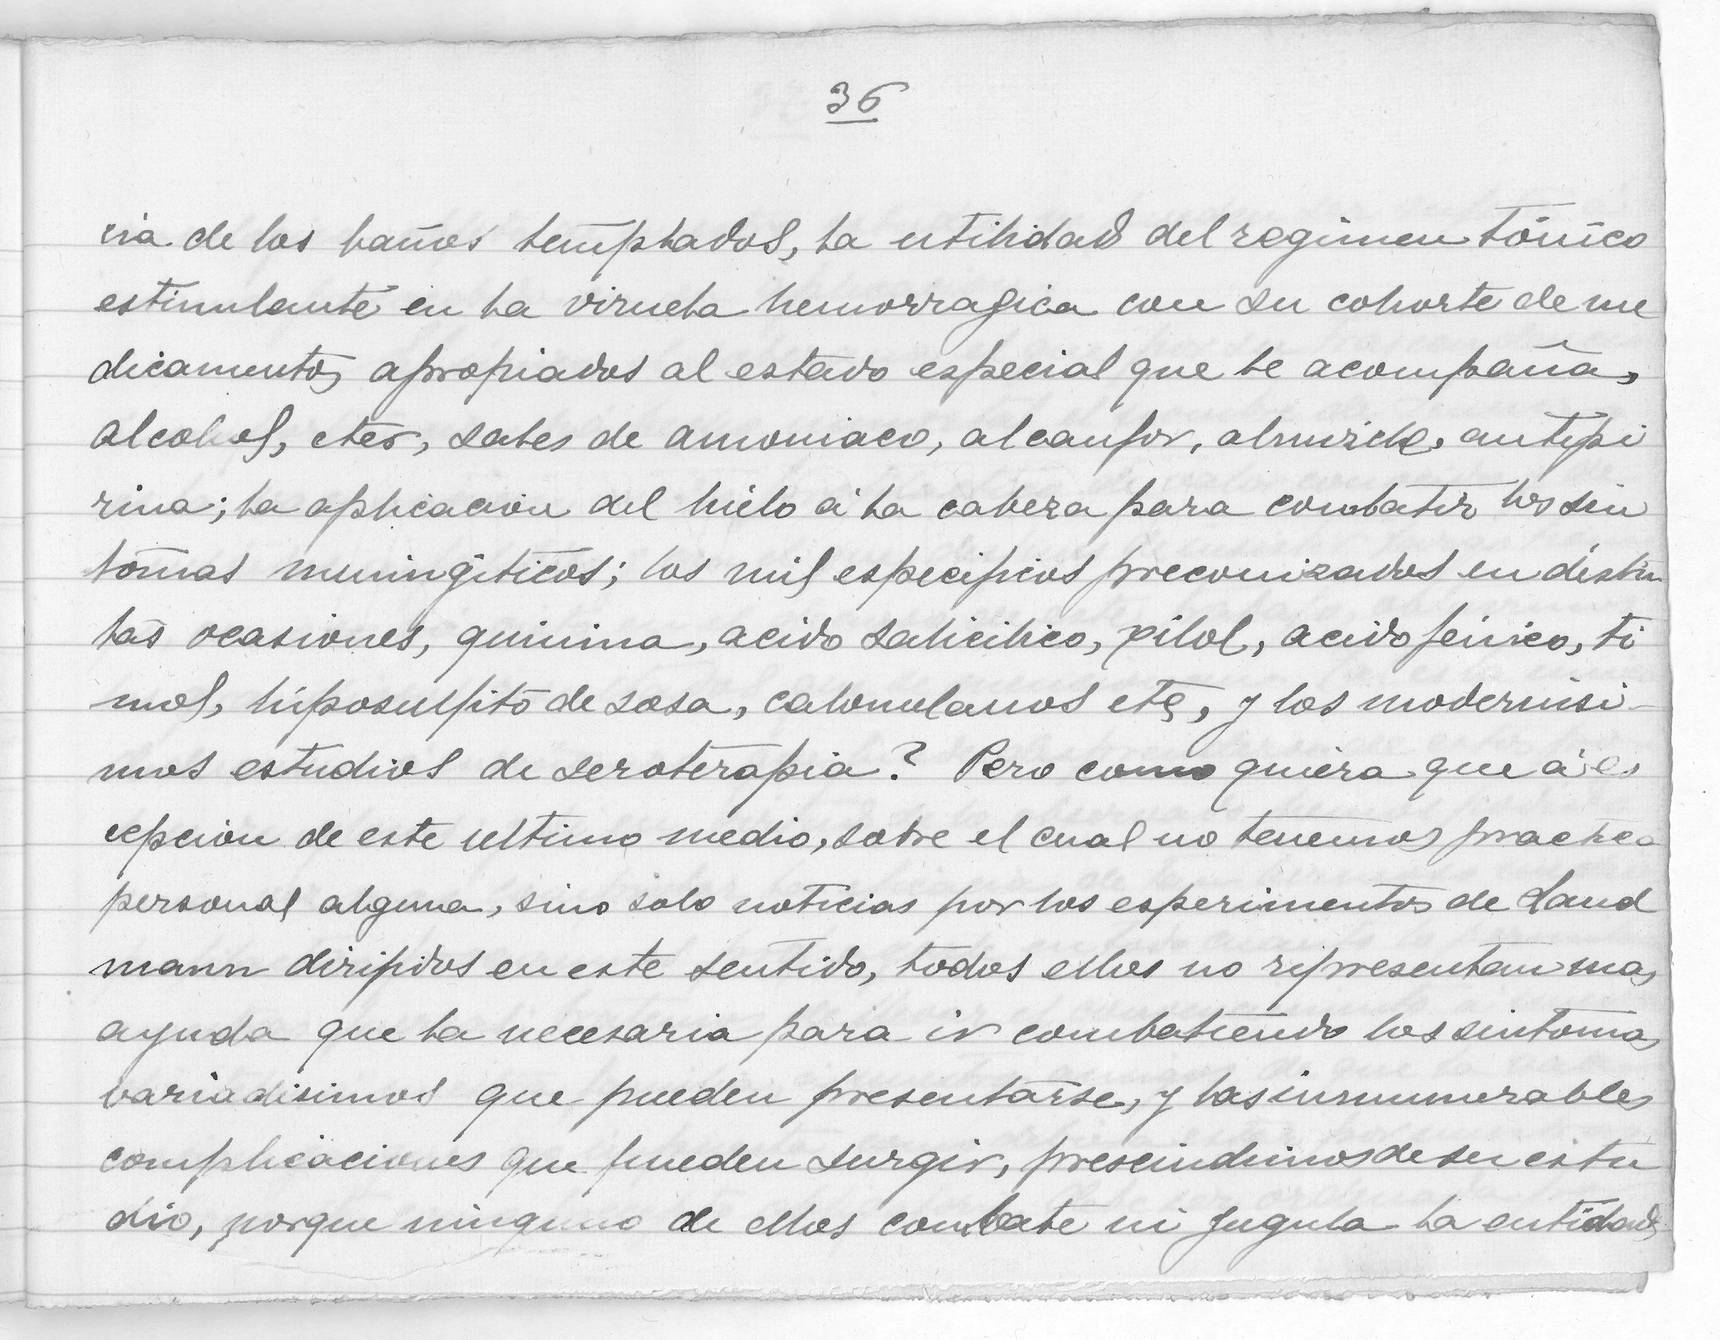 36
cia de los baños templados, la utilidad del regimen tónico
estimulante en la viruela hemorragica con su cohorte de me
dicamentos apropiados al estado especial que le acompaña,
alcohol, eter, sales de amoniaco, alcanfor, almizcle, antipi
rina; la aplicacion del hielo á la cabeza para combatir los sin
tomas meningiticos; los mil especificos preconizados en distin
tas ocasiones, quinina, acido salicilico, xilol, acido fénico, ti
mol, hiposulfito de sosa, calomelanos etc, y los modernisi-
mos estudios de seroterapia? Pero como quiera que á es
cepcion de este ultimo medio, sobre el cual no tenemos practica
personal alguna, sino solo noticias por los esperimentos de Land
mann dirigidos en este sentido, todos ellos no representan mas
ayuda que la necesaria para ir combatiendo los sintomas
variadisimos que pueden presentarse, y las innumerables
complicaciones que pueden surgir, prescindimos de su estu
dio, porque ninguno de ellos combate ni yugula la entidad